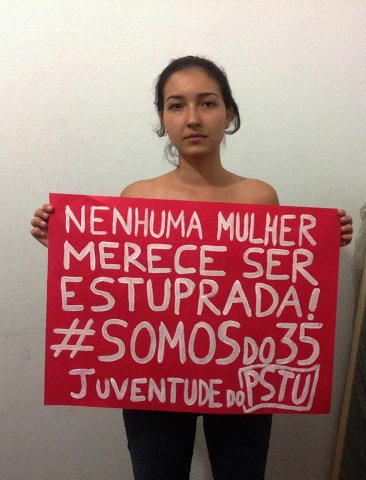 NENHUMA MULHER
MERECE SER
ESTUPRADA!
#SOMOSDO35
JUVENTUDE DO PSTU